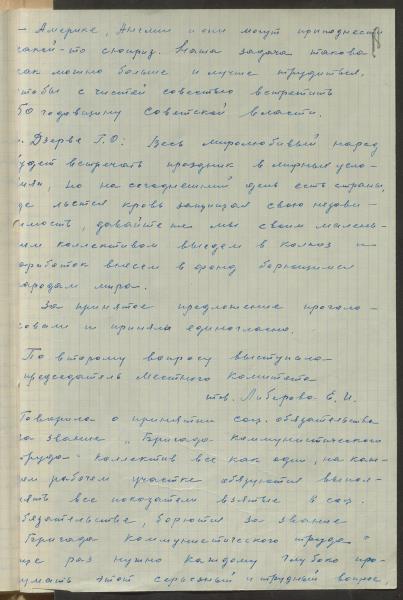 - Америке, Англии и они могут преподнести
какой-то сюрприз. Наша задача такова
как можно больше и лучше трудиться,
чтобы с чистой совестью встретить
50 годовщину советской власти.
. Дзерве Г.О: Весь миролюбивый народ
будет встречать праздник в мирных усло-
виях, но на сегодняшний день есть страны,
где льется кровь защищая свою незави-
симость, давайте же мы своим малень-
ким коллективом выедем в колхоз и
заработок внесем в фонд борющимся
народам мира.
За принятое предложение проголо-
совали и приняли единогласно.
По второму вопросу выступила
председатель местного комитета
тов. Либерова Е. И.
Говорила о принятии соц. обязательства
на звание "Бригада коммунистического
труда" коллектив все как один, на каж-
дом рабочем участке обязуются выпол-
нять все показатели взятые в соц.
обязательстве, борются за звание
"Бригада коммунистического труда"
еще раз нужно каждому глубоко про-
думать этот серьезный и трудный вопрос,